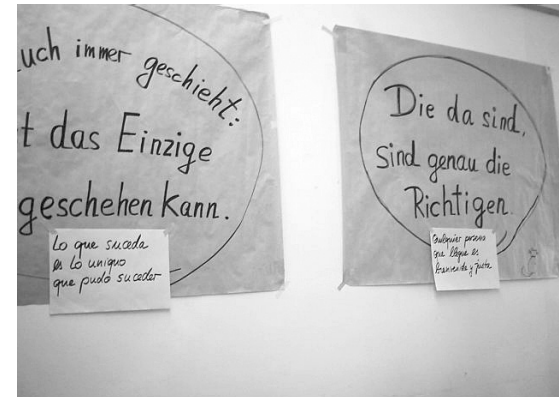 uch immer geschieht:
t das Einzige
geschehen kann.
Lo que suceda
es lo unigno
que pudo suceder
Die da sind,
sind genau die
Richtigen.
Cualquier persona
que llegue es
bienvenida y justa